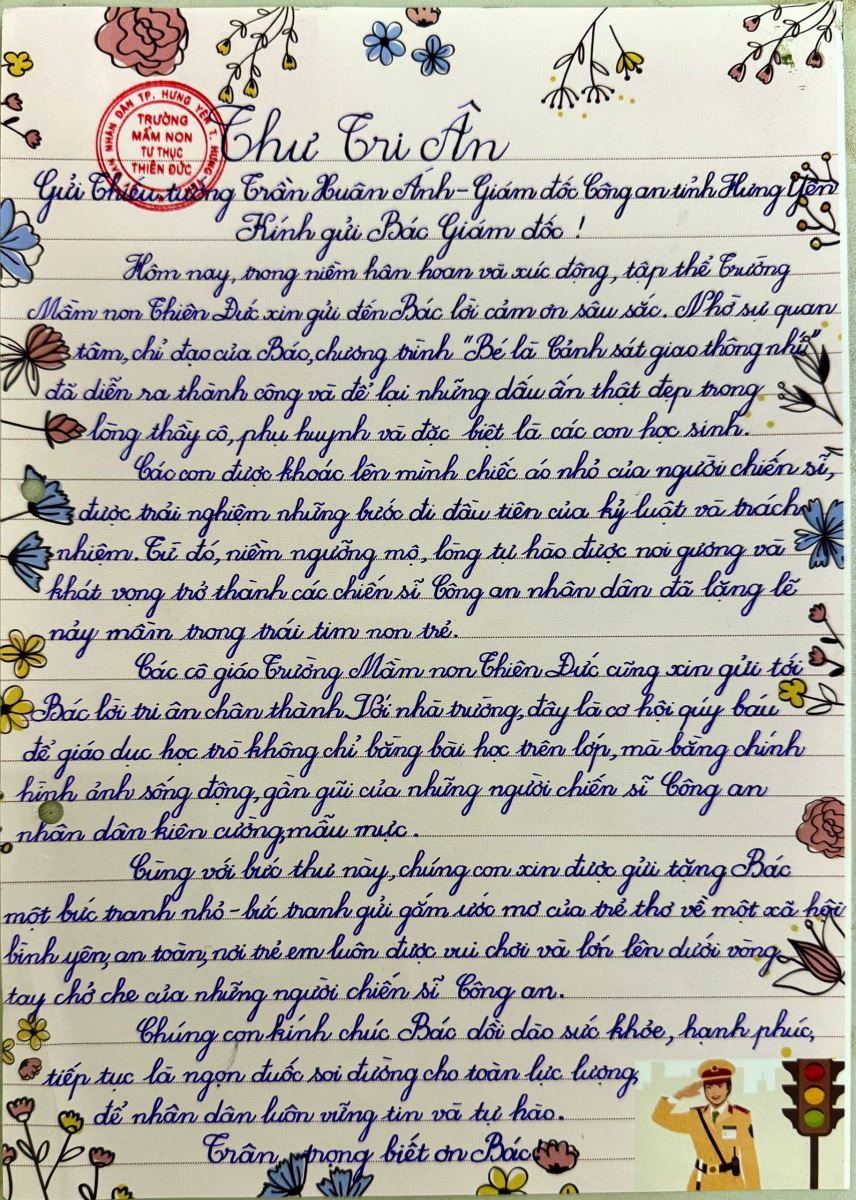 Thư Tri Ân
Gửi Thiếu tướng Trần Xuân Ánh - Giám đốc Công an tỉnh Hưng Yên
Kính gửi Bác Giám đốc !
Hôm nay, trong niềm hân hoan và xúc động, tập thể Trường
Mầm non Thiên Đức xin gửi đến Bác lời cảm ơn sâu sắc. Nhờ sự quan
tâm, chỉ đạo của Bác, chương trình "Bé là Cảnh sát giao thông nhí"
đã diễn ra thành công và để lại những dấu ấn thật đẹp trong
lòng thầy cô, phụ huynh và đặc biệt là các con học sinh.
Các con được khoác lên mình chiếc áo nhỏ của người chiến sĩ,
được trải nghiệm những bước đi đầu tiên của kỷ luật và trách
nhiệm. Từ đó, niềm ngưỡng mộ, lòng tự hào được noi gương và
khát vọng trở thành các chiến sĩ Công an nhân dân đã lặng lẽ
nảy mầm trong trái tim non trẻ.
Các cô giáo Trường Mầm non Thiên Đức cũng xin gửi tới
Bác lời tri ân chân thành. Với nhà trường, đây là cơ hội qúy báu
để giáo dục học trò không chỉ bằng bài học trên lớp, mà bằng chính
hình ảnh sống động, gần gũi của những người chiến sĩ Công an
nhân dân kiên cường, mẫu mực.
Cùng với bức thư này, chúng con xin được gửi tặng Bác
một bức tranh nhỏ - bức tranh gửi gắm ước mơ của trẻ thơ về một xã hội
bình yên, an toàn, nơi trẻ em luôn được vui chơi và lớn lên dưới vòng
tay chở che của những người chiến sĩ Công an.
Chúng con kính chúc Bác dồi dào sức khỏe, hạnh phúc,
tiếp tục là ngọn đuốc soi đường cho toàn lực lượng,
để nhân dân luôn vững tin và tự hào.
Trân trọng biết ơn Bác!
TRƯỜNG
MẦM NON
TƯ THỤC
THIÊN ĐỨC
NHÂN DÂN TP. HƯNG YÊN T. HƯNG YÊN